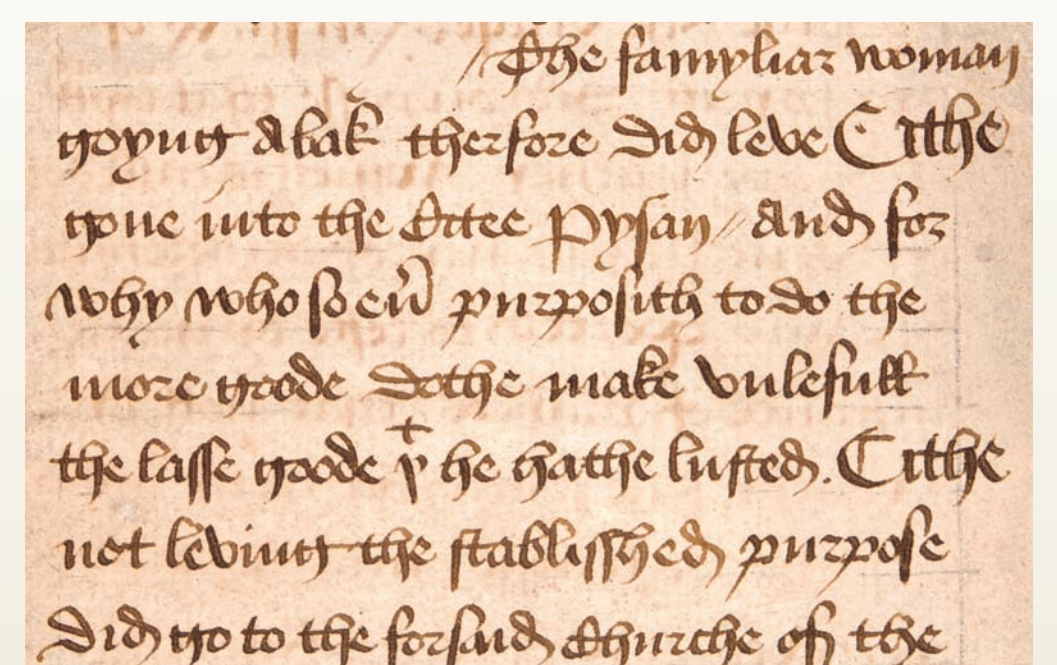 / The famyliar woman
goyng abak therfore did leve Cithe
gone into the Citee Pysan // And for
why who so eu̾ purposith to do the
more goode dothe make vnlefull
the lasse goode yᵗ he hathe lusted. Cithe
not leving the stablisshed purpose
did go to the forsaid Churche of the